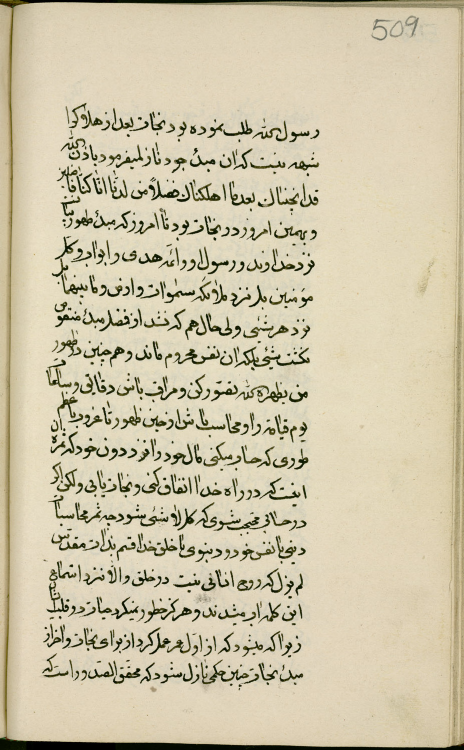 509
رسول الله طلب نموده بود نجات بعد از هلاک را
شبهه نیست که ان مبدء جود نازل میفرمود باذن الله
قد انجیناک بعد ما اهلکناک فضلاً من لدنا انا کنا فاضلین
و بهمین امروز در نجات بود تا امروز که مبدء ظهور بیان
نزد خداوند و رسول او و ائمه هدی و ابواب و کل
مؤمنین بل نزد ملائکه سموات و ارض و ما بینهما بل
نزد هر شیئی ولی حال هم که نشد از فضل مبدء منقوص
نگشت شیئی بلکه ان نفس محروم ماند و هم چنین در ظهور
من یظهره الله تصور کن و مراقب باش دقایق و ساعات
یوم قیامة را و محاسب باش از حین ظهور تا غروب باعظم
طوری که حساب میکنی مال خود را نزد دون خود که ثمره ان
اینست که در راه خدا انفاق کنی و نجات یابی ولکن اگر
در حالی محتجب شوی که کل لا شئی شود چه ثمر محاسبات
دنیا با نفس خود و دنیوی با خلق خدا قسم بذات مقدس
لم یزل که روح انسانی نیست در خلق والا نزد استماع
این کلمه اب میشدند و هرگز خطور نمیکرد حیات در قلب
زیرا که میشود که از اول عمر عمل کرد از برای نجات و اخر از
مبدء نجات چنین حکمی نازل شود که محقق الصدور است که